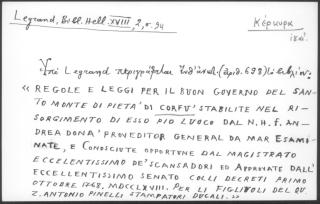 Legrand, Bibl. Hell. XVIII, 2, σ. 94
Κέρκυρα
Ὑπὸ Legrand περιγράφεται (ἀριθ. 698)
« REGOLE E LEGGI PER IL BUON GOVERNO DEL SAN-
TO MONTE DI PIETA' DI CORFU' STABILITE NEL RI-
SORGIMENTO DI ESSO PIO LUOCO DAL N.H.F. AN-
DREA DONA' PROVEDITOR GENERAL DA MAR ESAMI-
NATE, E CONOSCIUTE OPPORTUNE DAL MAGISTRATO
ECCELENTISSIMO DE' SCANSADORI ED APPROVATE DALL'
ECCELLENTISSIMO SENATO COLLI DECRETI PRIMO
OTTOBRE 1768. MDCCLXVIII. PER LI FIGLIVOLI DEL QU.
Z. ANTONIO PINELLI STAMPATORI DUCALI. »